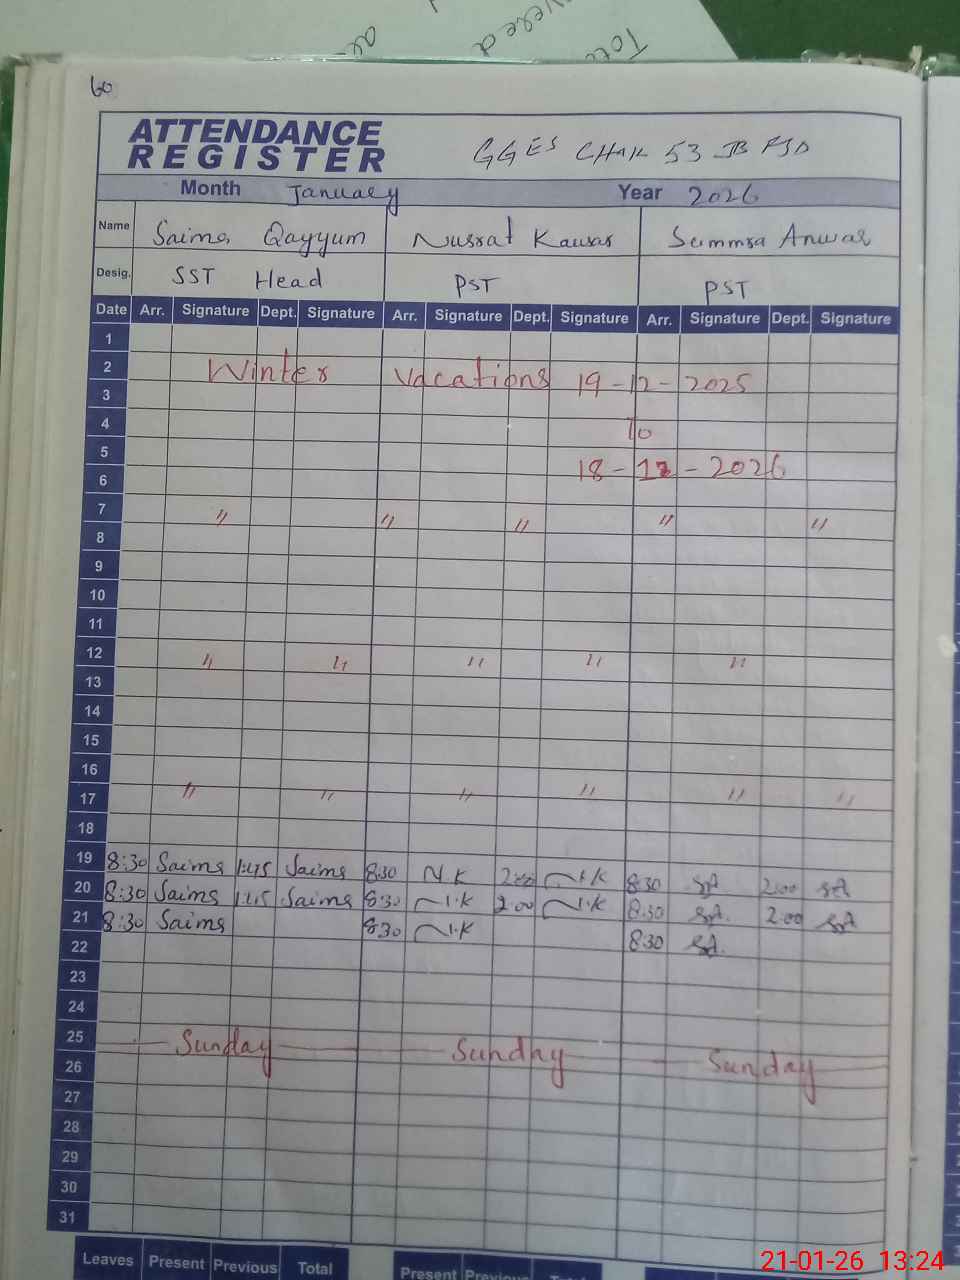 60
ATTENDANCE
REGISTER
GGES CHAK 53 JB FSD
Month January Year 2026
Name Saima Qayyum Nusrat Kausar Summra Anwar
Desig. SST Head PST PST
Date Arr. Signature Dept. Signature Arr. Signature Dept. Signature Arr. Signature Dept. Signature
1
2 Winter Vacations 19-12-2025
3
4 To
5
6 18-12-2026
7 " " " " "
8
9
10
11
12 " " " " "
13
14
15
16
17 " " " " " "
18
19 8:30 Saima 1:45 Saima 8:30 N.K 2:00 N.K 8:30 SA 2:00 SA
20 8:30 Saima 1:45 Saima 8:30 N.K 2:00 N.K 8:30 SA. 2:00 SA
21 8:30 Saima 8:30 N.K 8:30 SA.
22
23
24
25 Sunday Sunday Sunday
26
27
28
29
30
31
Leaves Present Previous Total Present Previous Total
21-01-26 13:24